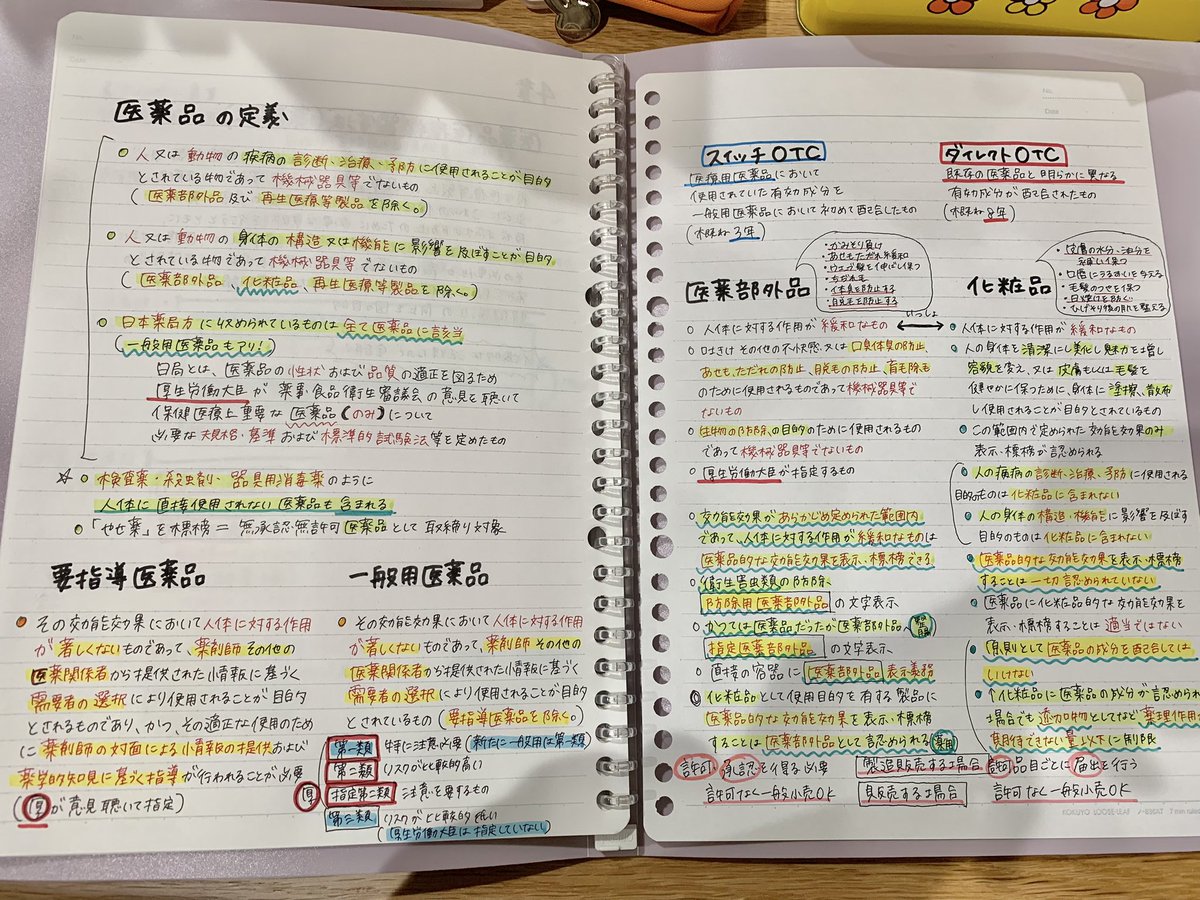 医薬品の定義
人又は動物の疾病の診断・治療・予防に使用されることが目的
とされている物であって機械器具等でないもの
(医薬部外品及び再生医療等製品を除く。)
人又は動物の身体の構造又は機能に影響を及ぼすことが目的
とされている物であって機械器具等でないもの
(医薬部外品、化粧品、再生医療等製品を除く。)
日本薬局方に収められているものは全て医薬品に該当
(一般用医薬品もアリ!)
日局とは、医薬品の性状および品質の適正を図るため
厚生労働大臣が薬事・食品衛生審議会の意見を聴いて
保健医療上重要な医薬品(のみ)について
必要な規格・基準および標準的試験法等を定めたもの
☆ 検査薬・殺虫剤・器具用消毒薬のように
人体に直接使用されない医薬品も含まれる
「やせ薬」を標榜=無承認無許可医薬品として取締り対象
要指導医薬品
その効能効果において人体に対する作用
が著しくないものであって、薬剤師その他の
医薬関係者から提供された情報に基づく
需要者の選択により使用されることが目的
とされるものであり、かつ、その適正な使用のため
に薬剤師の対面による情報の提供および
薬学的知見に基づく指導が行われることが必要
(厚が意見聴いて指定)
一般用医薬品
その効能効果において人体に対する作用
が著しくないものであって、薬剤師その他の
医薬関係者から提供された情報に基づく
需要者の選択により使用されることが目的
とされているもの(要指導医薬品を除く。)
第一類 特に注意必要(新たに一般用は第一類)
第二類 リスクが比較的高い
厚 指定第二類 注意を要するもの
第三類 リスクが比較的低い
(厚生労働大臣は指定していない)
スイッチOTC
医療用医薬品において
使用されていた有効成分を
一般用医薬品において初めて配合したもの
(概ね3年)
ダイレクトOTC
既存の医薬品と明らかに異なる
有効成分が配合されたもの
(概ね8年)
医薬部外品
・かみそり負け
・あせもただれ緩和
・ウェーブ髪を伸ばし保つ
・体臭を防止する
・脱毛を防止する
いっしょ
人体に対する作用が緩和なもの
吐きけその他の不快感、又は口臭体臭の防止、
あせも、ただれの防止、脱毛の防止、育毛除毛
のために使用されるものであって機械器具等で
ないもの
生物の防除の目的のために使用されるもの
であって機械器具等でないもの
厚生労働大臣が指定するもの
効能効果があらかじめ定められた範囲内
であって、人体に対する作用が緩和なものは
医薬品的な効能効果を表示・標榜できる
衛生害虫類の防除、
防除用医薬部外品の文字表示
かつては医薬品だったが医薬部外品へ
指定医薬部外品の文字表示
直接の容器に医薬部外品表示義務
化粧品として使用目的を有する製品に
医薬品的な効能効果を表示・標榜
することは医薬部外品として認められる 薬用
許可 承認を得る必要
許可なく一般小売OK
製造販売する場合
販売する場合
化粧品
・皮膚の水分、油分を
補い保つ
・口唇にうるおいを与える
・毛髪のつやを保つ
・日焼けを防ぐ
・ひげそり後の肌を整える
人体に対する作用が緩和なもの
人の身体を清潔にし美化し魅力を増し
容貌を変え、又は皮膚もしくは毛髪を
健やかに保つために、身体に塗擦、散布
し使用されることが目的とされているもの
この範囲内で定められた効能効果のみ
表示・標榜が認められる
人の疾病の診断・治療・予防に使用される
目的のものは化粧品に含まれない
人の身体の構造・機能に影響を及ぼす
目的のものは化粧品に含まれない
医薬品的な効能効果を表示・標榜
することは一切認められていない
医薬品に化粧品的な効能効果を
表示・標榜することは適当ではない
原則として医薬品の成分を配合しては
いけない
化粧品に医薬品の成分が認められ
場合でも添加物としてなど薬理作用が
期待できない量以下に制限
許可 品目ごとに届出を行う
許可なく一般小売OK
KOKUYO LOOSE-LEAF